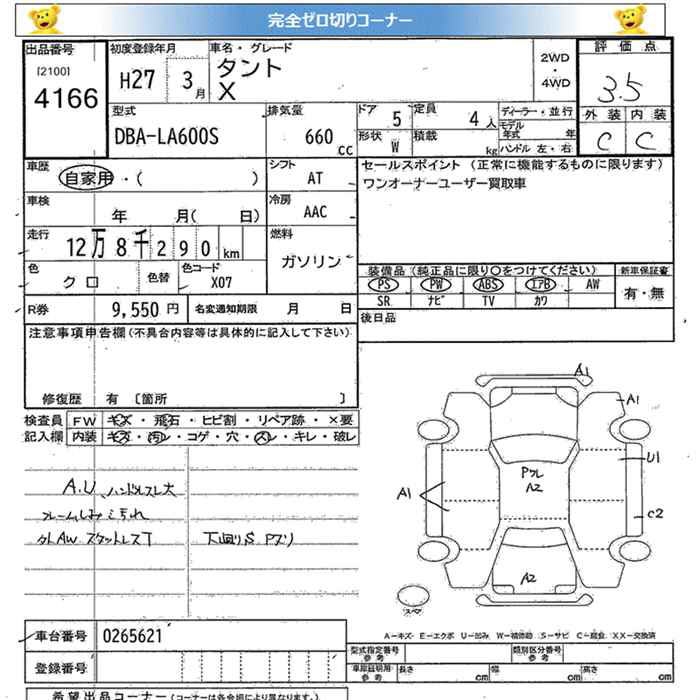 完全ゼロ切りコーナー
出品番号
[2100]
4166
初度登録年月
H27 3月
車名・グレード
タント
X
2WD
・
4WD
評価点
3.5
外装 内装
C C
型式
DBA-LA600S
排気量
660 cc
ドア 5
形状 W
定員 4人
積載 kg
ディーラー・並行
モデル年式 年
ハンドル 左・右
車歴
自家用・( )
シフト
AT
セールスポイント (正常に機能するものに限ります)
ワンオーナーユーザー買取車
車検
年 月( 日)
冷房
AAC
走行
12万8千290km
燃料
ガソリン
色
クロ
色替
色コード
X07
装備品(純正品に限り○をつけてください)
新車保証書
PS PW ABS エアB AW
SR ナビ TV カワ
有・無
R券 9,550円
名変通知期限 月 日
後日品
注意事項申告欄(不具合内容等は具体的に記入して下さい)
修復歴 有 〔箇所 〕
検査員記入欄
FW キズ・飛石・ヒビ割・リペア跡・×要
内装 キズ・汚レ・コゲ・穴・スレ・キレ・破レ
A.U、ハンドルスレ大
フレームしみこ汚れ
外AW スタットレス
下廻りS Pブリ
A1
A1
U1
Pブル
A2
A1
C2
A2
スペア
A-キズ E-エクボ U-凹み W-補修跡 S-サビ C-腐食 XX-交換済
車台番号 0265621
登録番号
型式指定番号
参考
類別区分番号
参考
車庫証明用
参考
長さ cm 幅 cm 高さ cm
希望出品コーナー(コーナーは各会場により異なります。)